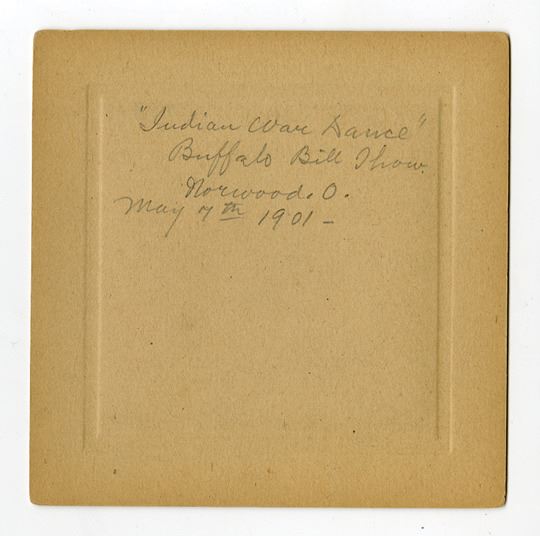 "Indian War Dance"
Buffalo Bill Show.
Norwood. O.
May 7th 1901 -